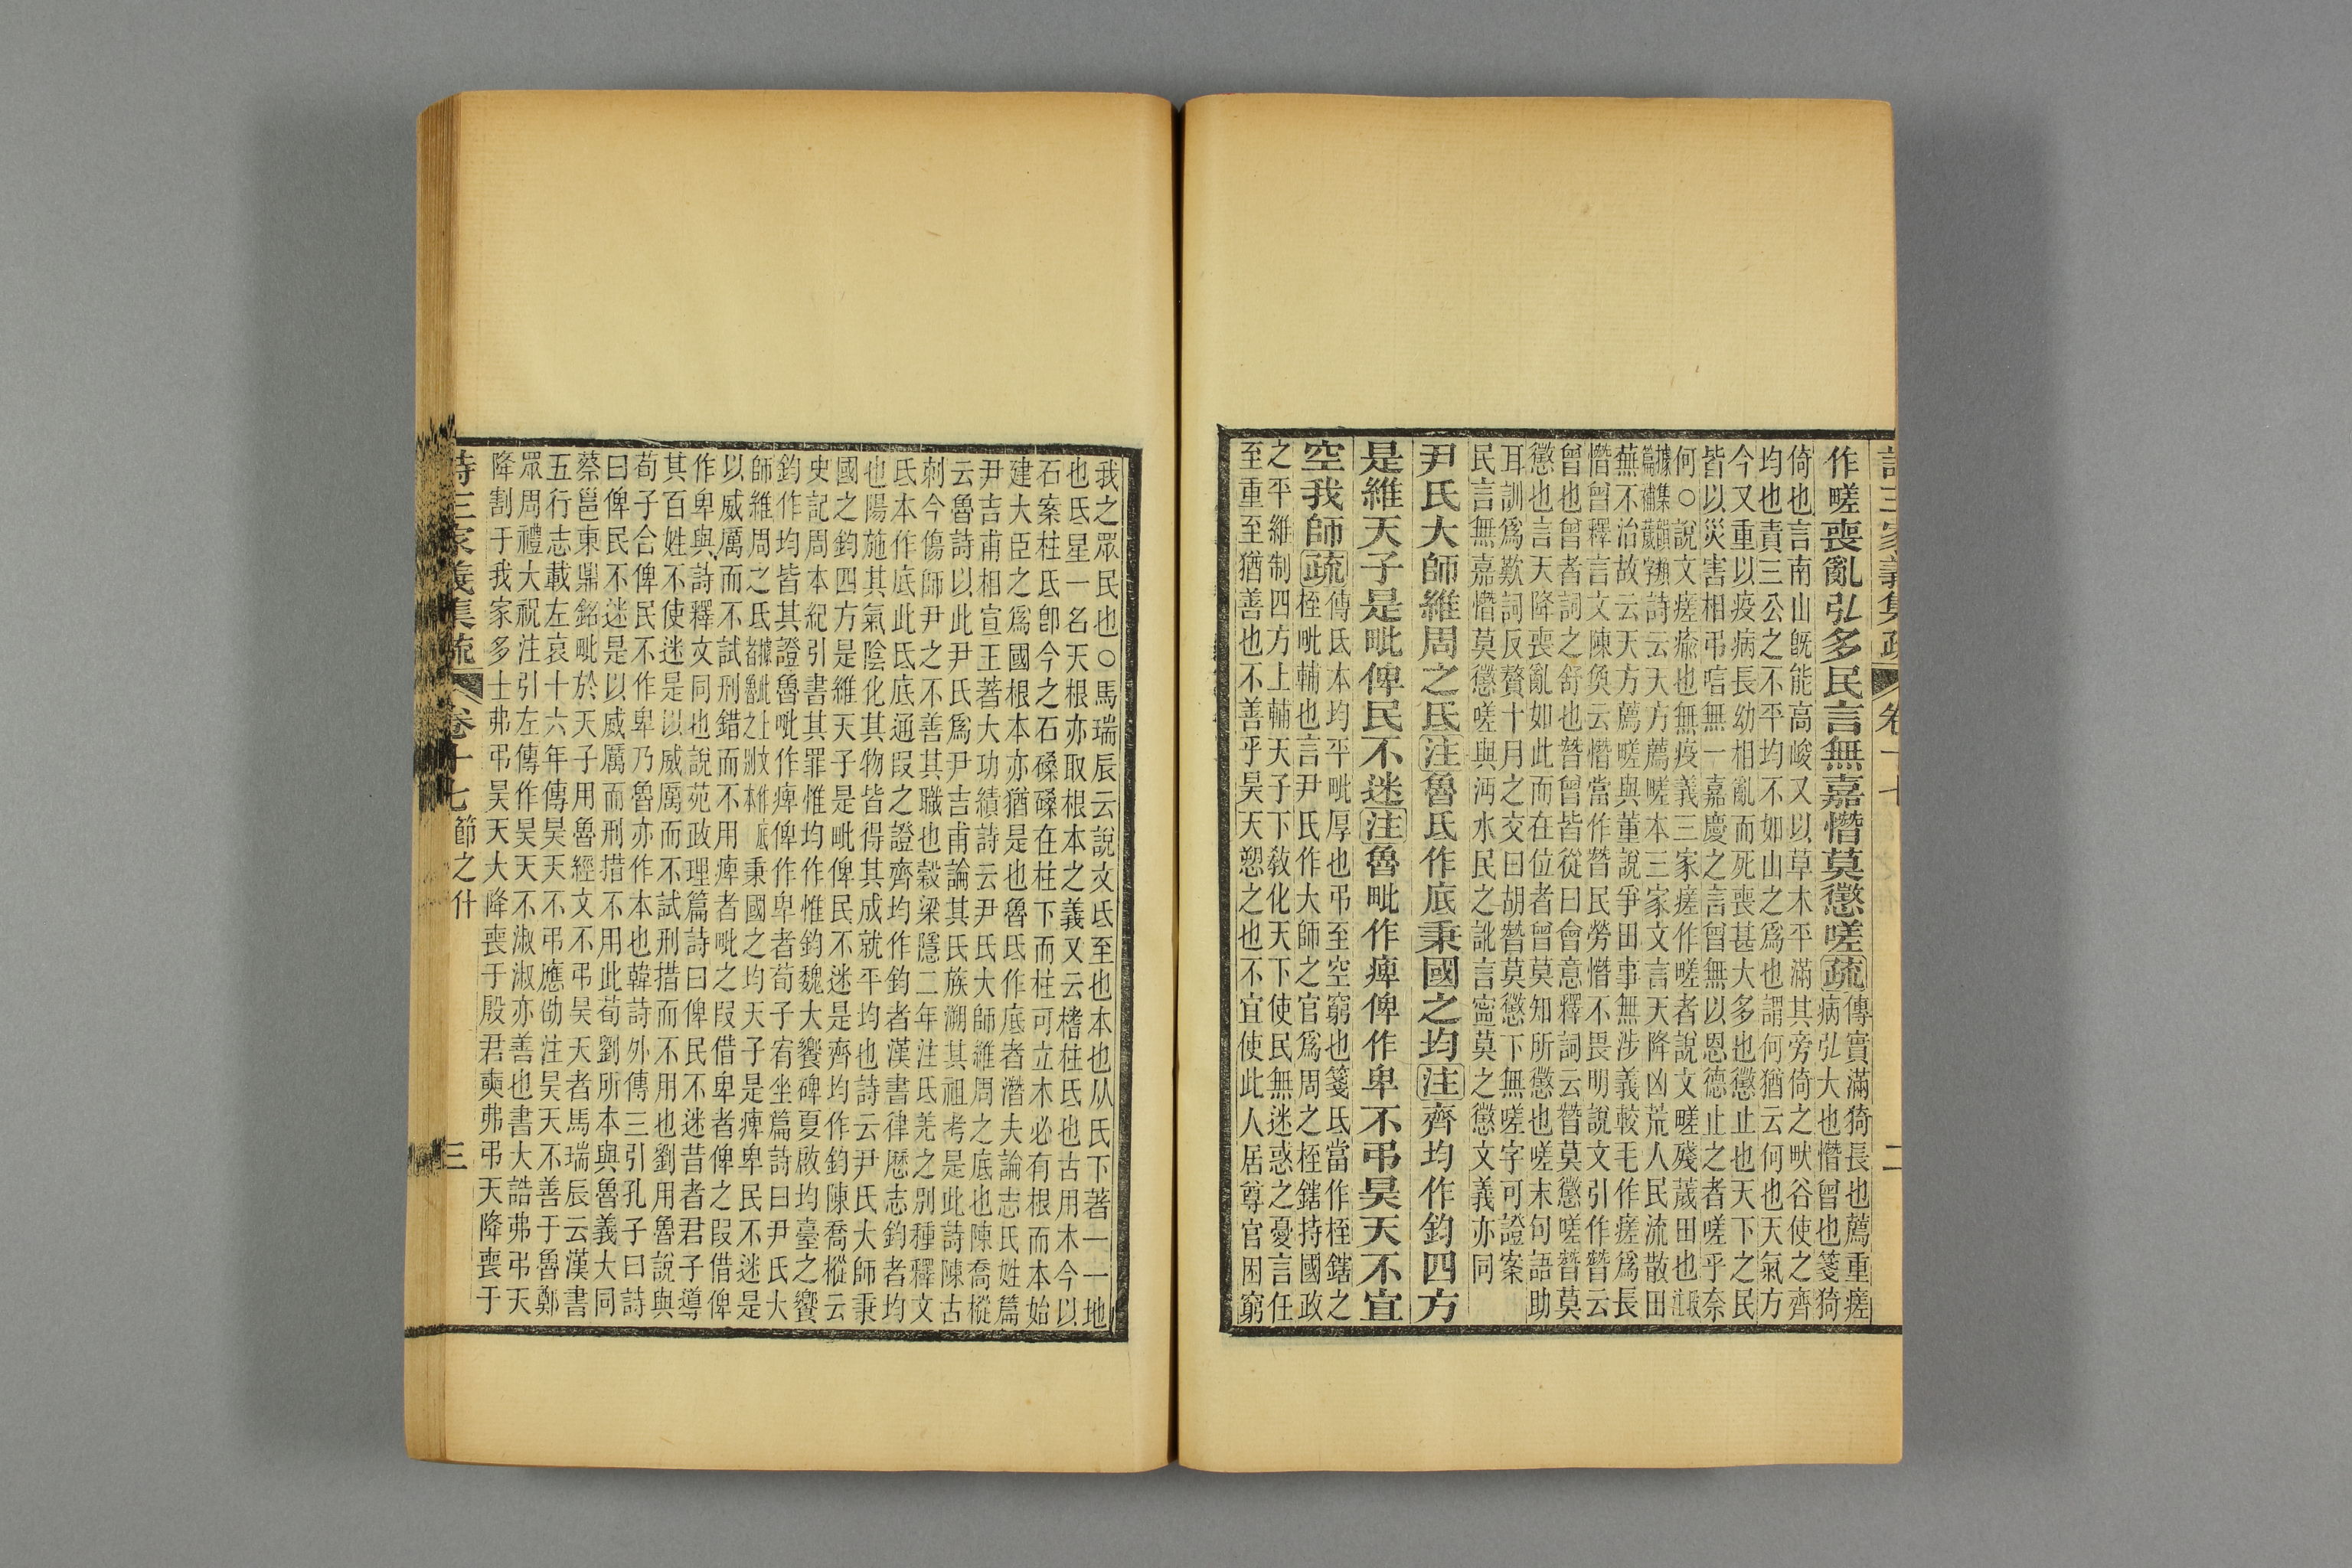 詩三家義集疏 卷十七 二
作㽨喪亂弘多民言無嘉憯莫懲嗟疏傳實滿猗長也薦重瘥
病弘大也憯曾也箋猗
倚也言南山既能高峻又以草木平滿其旁倚之畎谷使之齊
均也責三公之不平均不如山之爲也謂何猶云何也天氣方
今又重以疫病長幼相亂而死喪甚大多也懲止也天下之民
皆以災害相弔唁無一嘉慶之言曾無以恩德止之者嗟乎奈
何○說文瘥瘉也無疫義三家瘥作㽨者說文㽨殘薉田也段注
據集韻類篇補薉字詩云天方薦㽨本三家文言天降凶荒人民流散田
蕪不治故云天方薦㽨與董說爭田事無涉義較毛作瘥爲長
憯曾釋言文陳奐云憯當作朁民勞憯不畏明說文引作朁云
曾也曾者詞之舒也朁曾皆從曰會意釋詞云朁莫懲嗟朁莫
懲也言天降喪亂如此而在位者曾莫知所懲也嗟末句語助
耳訓爲歎詞反贅十月之交曰胡朁莫懲下無嗟字可證案
民言無嘉憯莫懲嗟與沔水民之訛言寍莫之懲文義亦同
尹氏大師維周之氐注魯氐作底秉國之均注齊均作鈞四方
是維天子是毗俾民不迷注魯毗作痺俾作卑不弔昊天不宜
空我師疏傳氐本均平毗厚也弔至空窮也箋氐當作桎鎋之
桎毗輔也言尹氏作大師之官爲周之桎鎋持國政
之平維制四方上輔天子下敎化天下使民無迷惑之憂言任
至重至猶善也不善乎昊天愬之也不宜使此人居尊官困窮
我之眾民也○馬瑞辰云說文氐至也本也从氏下著一一地
也氐星一名天根亦取根本之義又云榰柱氐也古用木今以
石案柱氐卽今之石磉磉在柱下而柱可立木必有根而本始
建大臣之爲國根本亦猶是也魯氐作底者潛夫論志氏姓篇
尹吉甫相宣王著大功績詩云尹氏大師維周之底也陳喬樅
云魯詩以此尹氏爲尹吉甫論其氏族溯其祖考是此詩陳古
刺今傷師尹之不善其職也穀梁隱二年注氐羌之別種釋文
氐本作底此氐底通叚之證齊均作鈞者漢書律厯志鈞者均
也陽施其氣陰化其物皆得其成就平均也詩云尹氏大師秉
國之鈞四方是維天子是毗俾民不迷是齊均作鈞陳喬樅云
史記周本紀引書其罪惟均作惟鈞魏大饗碑夏啟均臺之饗
鈞作均皆其證魯毗作痺俾作卑者荀子宥坐篇詩曰尹氏大
師維周之氐秉國之均天子是痺卑民不迷是
以威厲而不試刑錯而不用痺者毗之叚借卑者俾之叚借俾
作卑與詩釋文同也說苑政理篇詩曰俾民不迷昔者君子導
其百姓不使迷是以威厲而不試刑措而不用也劉用魯說與
荀子合俾民不作卑乃魯亦作本也韓詩外傳三引孔子曰詩
曰俾民不迷是以威厲而刑措不用此荀劉所本與魯義大同
蔡邕東鼎銘毗於天子用魯經文不弔昊天者馬瑞辰云漢書
五行志載左哀十六年傳昊天不弔應劭注昊天不善于魯鄭
眾周禮大祝注引左傳作昊天不淑淑亦善也書大誥弗弔天
降割于我家多士弗弔昊天大降喪于殷君奭弗弔天降喪于
詩三家義集疏 卷十七 節之什 三